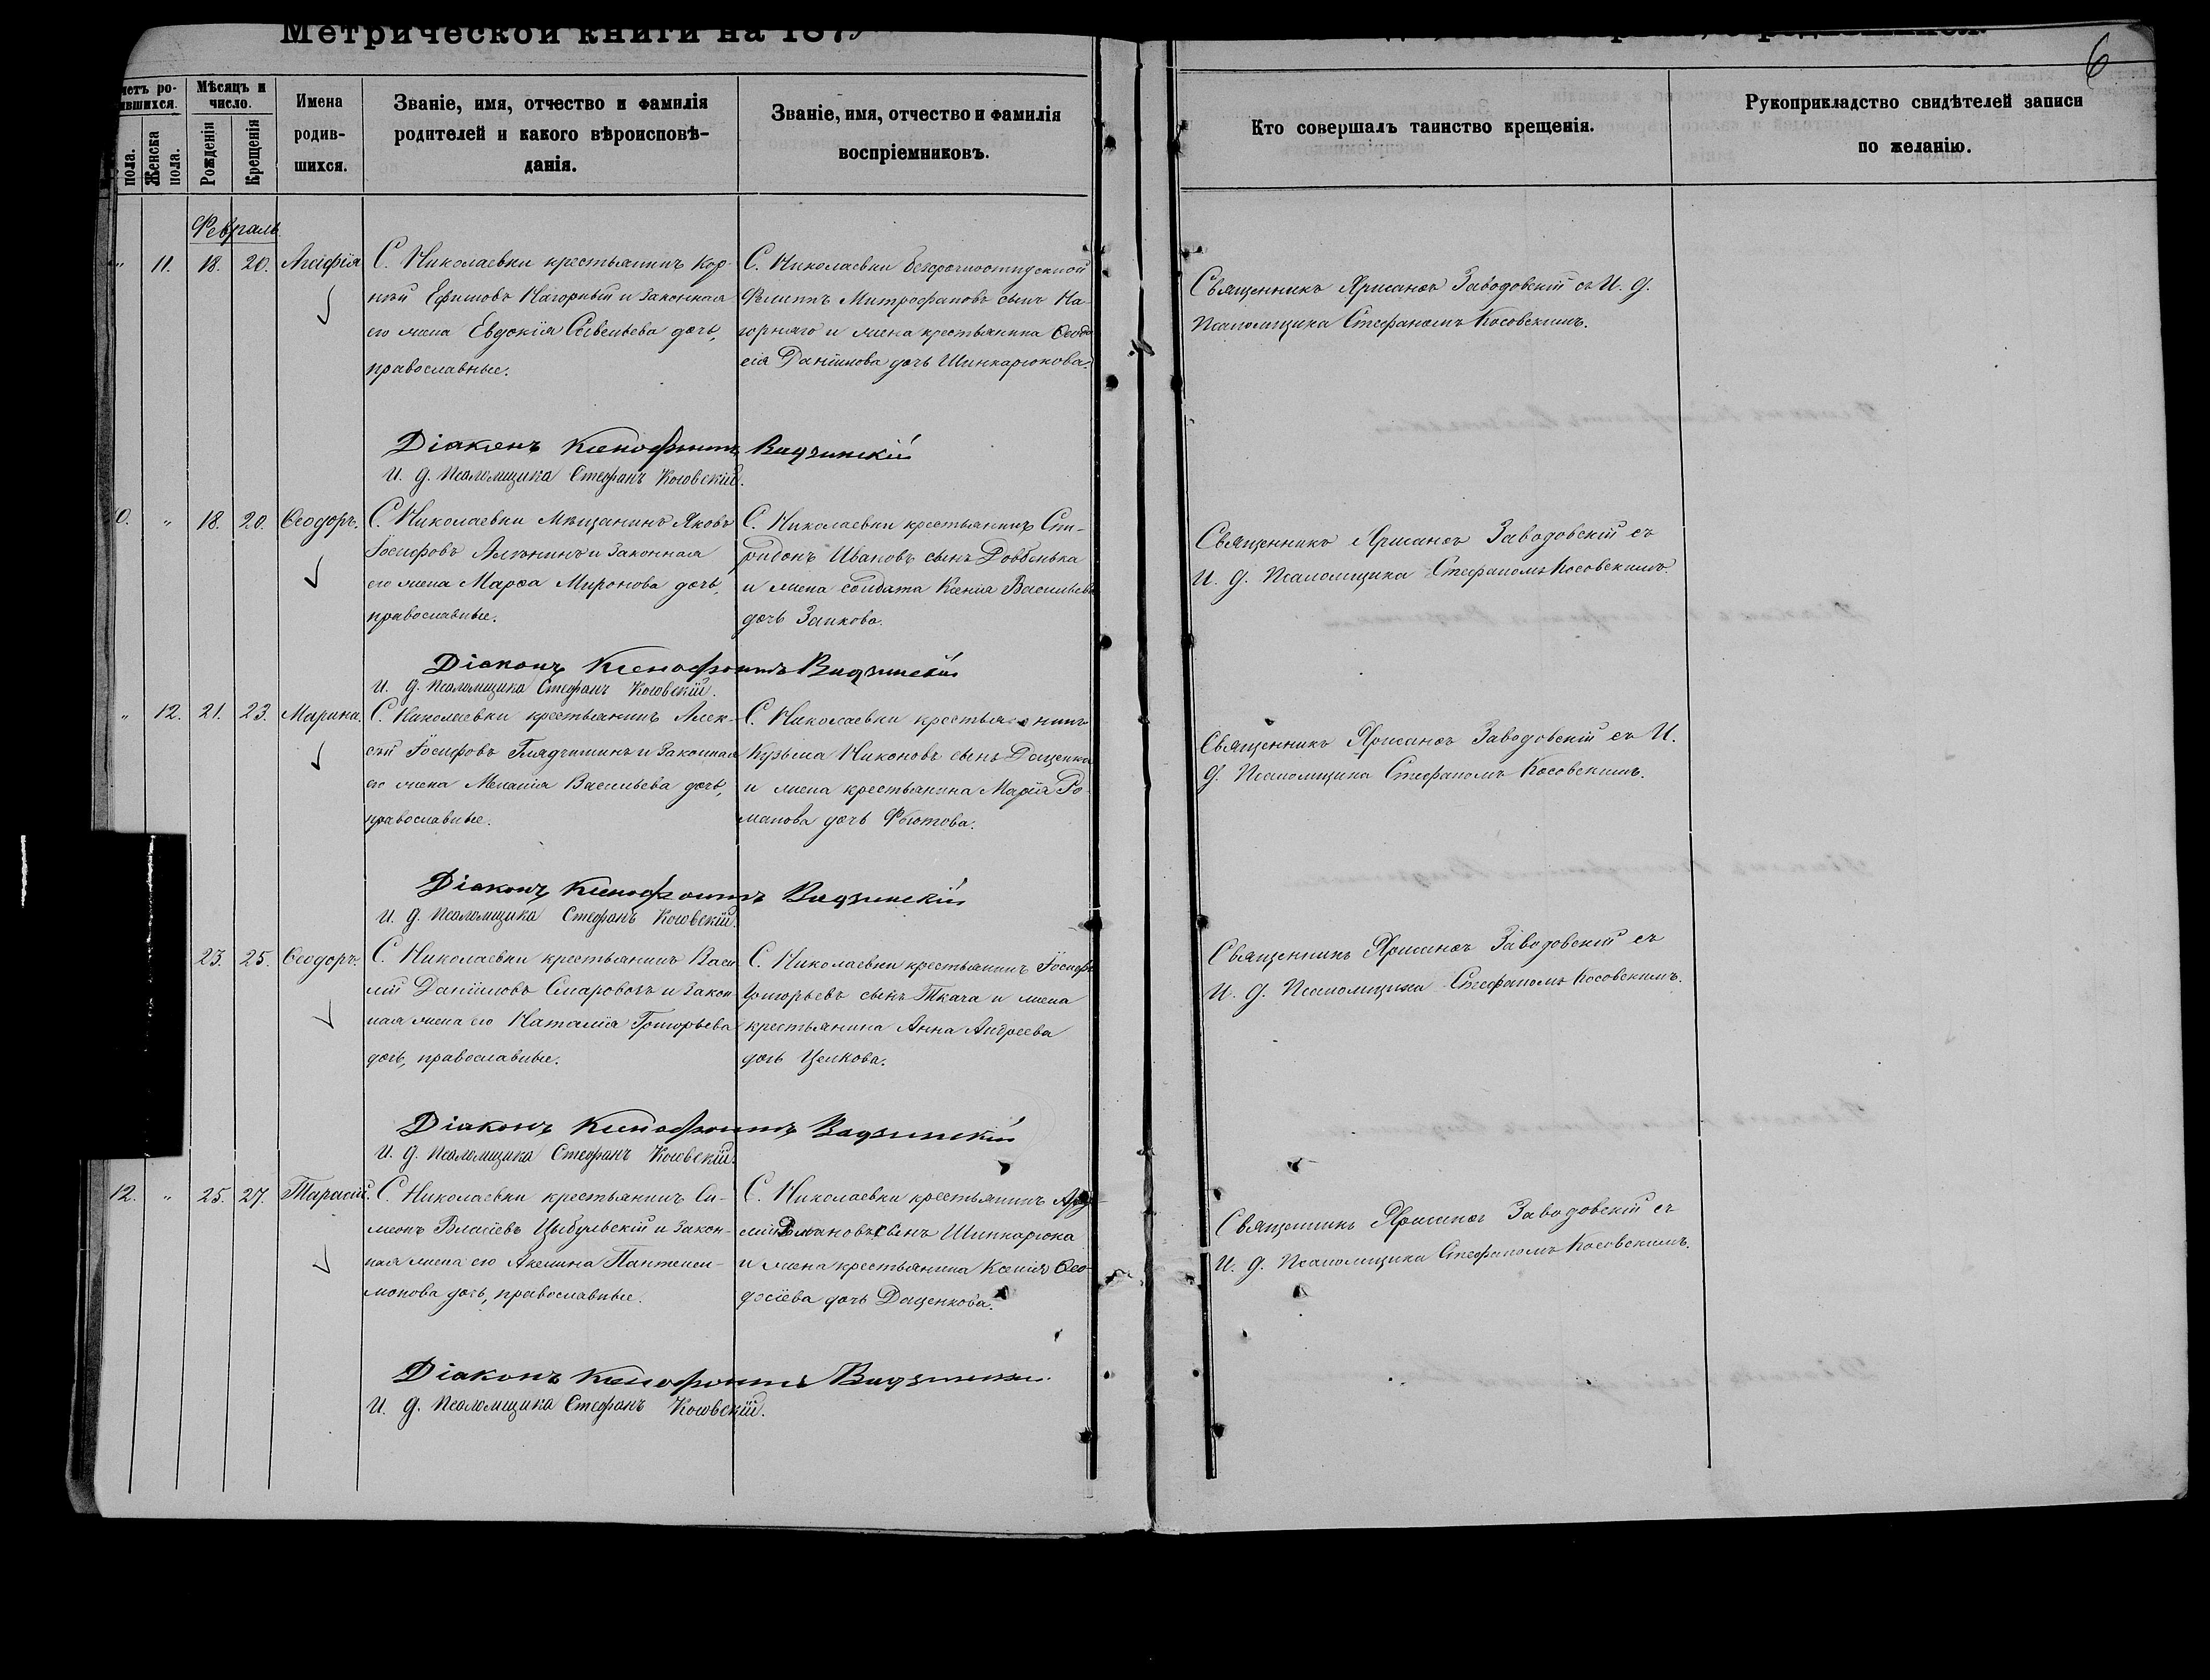 Метрической книги на 187
6
Мѣсяцъ и
число.
Женска
пола.
пола.
Рожденіи
Крещенія
Имена
родив-
шихся.
Званіе, имя, отчество и фамилія
родителей и какого вѣроисповѣ-
данія.
Званіе, имя, отчество и фамилія
воспріемниковъ.
Кто совершалъ таинство крещенія.
Рукоприкладство свидѣтелей записи
по желанію.
Февраль
" 11. 18. 20. Агафія
С. Николаевки крестьянинъ Кор-
нѣй Ефимовъ Нагорный и законная
его жена Евдокія Савельева дочь,
православные.
С. Николаевки безсрочноотпускной
Филиппъ Митрофановъ сынъ На-
горнаго и жена крестьянина Ѳеодо
сія Даніилова дочь Шинкарюкова.
Священникъ Заводовскій съ И. д.
Псаломщика Стефаномъ Косовскимъ.
Діаконъ Ксенофонтъ
И. д. Псаломщика Стефанъ Косовскій.
0. " 18. 20. Ѳеодоръ.
С. Николаевки Мѣщанинъ Яковъ
Іосифовъ и законная
его жена Марѳа Миронова дочь,
православные.
С. Николаевки крестьянинъ Спи-
ридонъ Ивановъ сынъ Довбенька
и жена солдата Ксенія Васильева
дочь Заикова.
Священникъ Заводовскій съ
И. д. Псаломщика Стефаномъ Косовскимъ.
Діаконъ Ксенофонтъ
И. д. Псаломщика Стефанъ Косовскій.
" 12. 21. 23. Марина.
С. Николаевки крестьянинъ Алек-
сѣй Іосифовъ и законная
его жена Меланія Васильева дочь,
православные.
С. Николаевки крестьянинъ
Кузьма Никоновъ сынъ Даценка
и жена крестьянина Марія Ро-
манова дочь
Священникъ Заводовскій съ И.
д. Псаломщика Стефаномъ Косовскимъ.
Діаконъ Ксенофонтъ
И. д. Псаломщика Стефанъ Косовскій.
23. 25. Ѳеодоръ.
С. Николаевки крестьянинъ Васи
лій Даніиловъ и закон
ная жена его Наталія Григорьева
дочь, православные.
С. Николаевки крестьянинъ Іосифъ
Григорьевъ сынъ Ткача и жена
крестьянина Анна Андреева
дочь Целкова.
Священникъ Заводовскій съ
И. д. Псаломщика Стефаномъ Косовскимъ.
Діаконъ Ксенофонтъ
И. д. Псаломщика Стефанъ Косовскій.
12. " 25. 27. Тарасій.
С. Николаевки крестьянинъ Си-
меонъ Власіевъ Цыбульскій и закон-
ная жена его Акелина Пантелеи-
монова дочь, православные.
С. Николаевки крестьянинъ
сынъ Шинкарюка
и жена крестьянина Ксенія Ѳео-
досіева дочь Даценкова.
Священникъ Заводовскій съ
И. д. Псаломщика Стефаномъ Косовскимъ.
Діаконъ Ксенофонтъ
И. д. Псаломщика Стефанъ Косовскій.